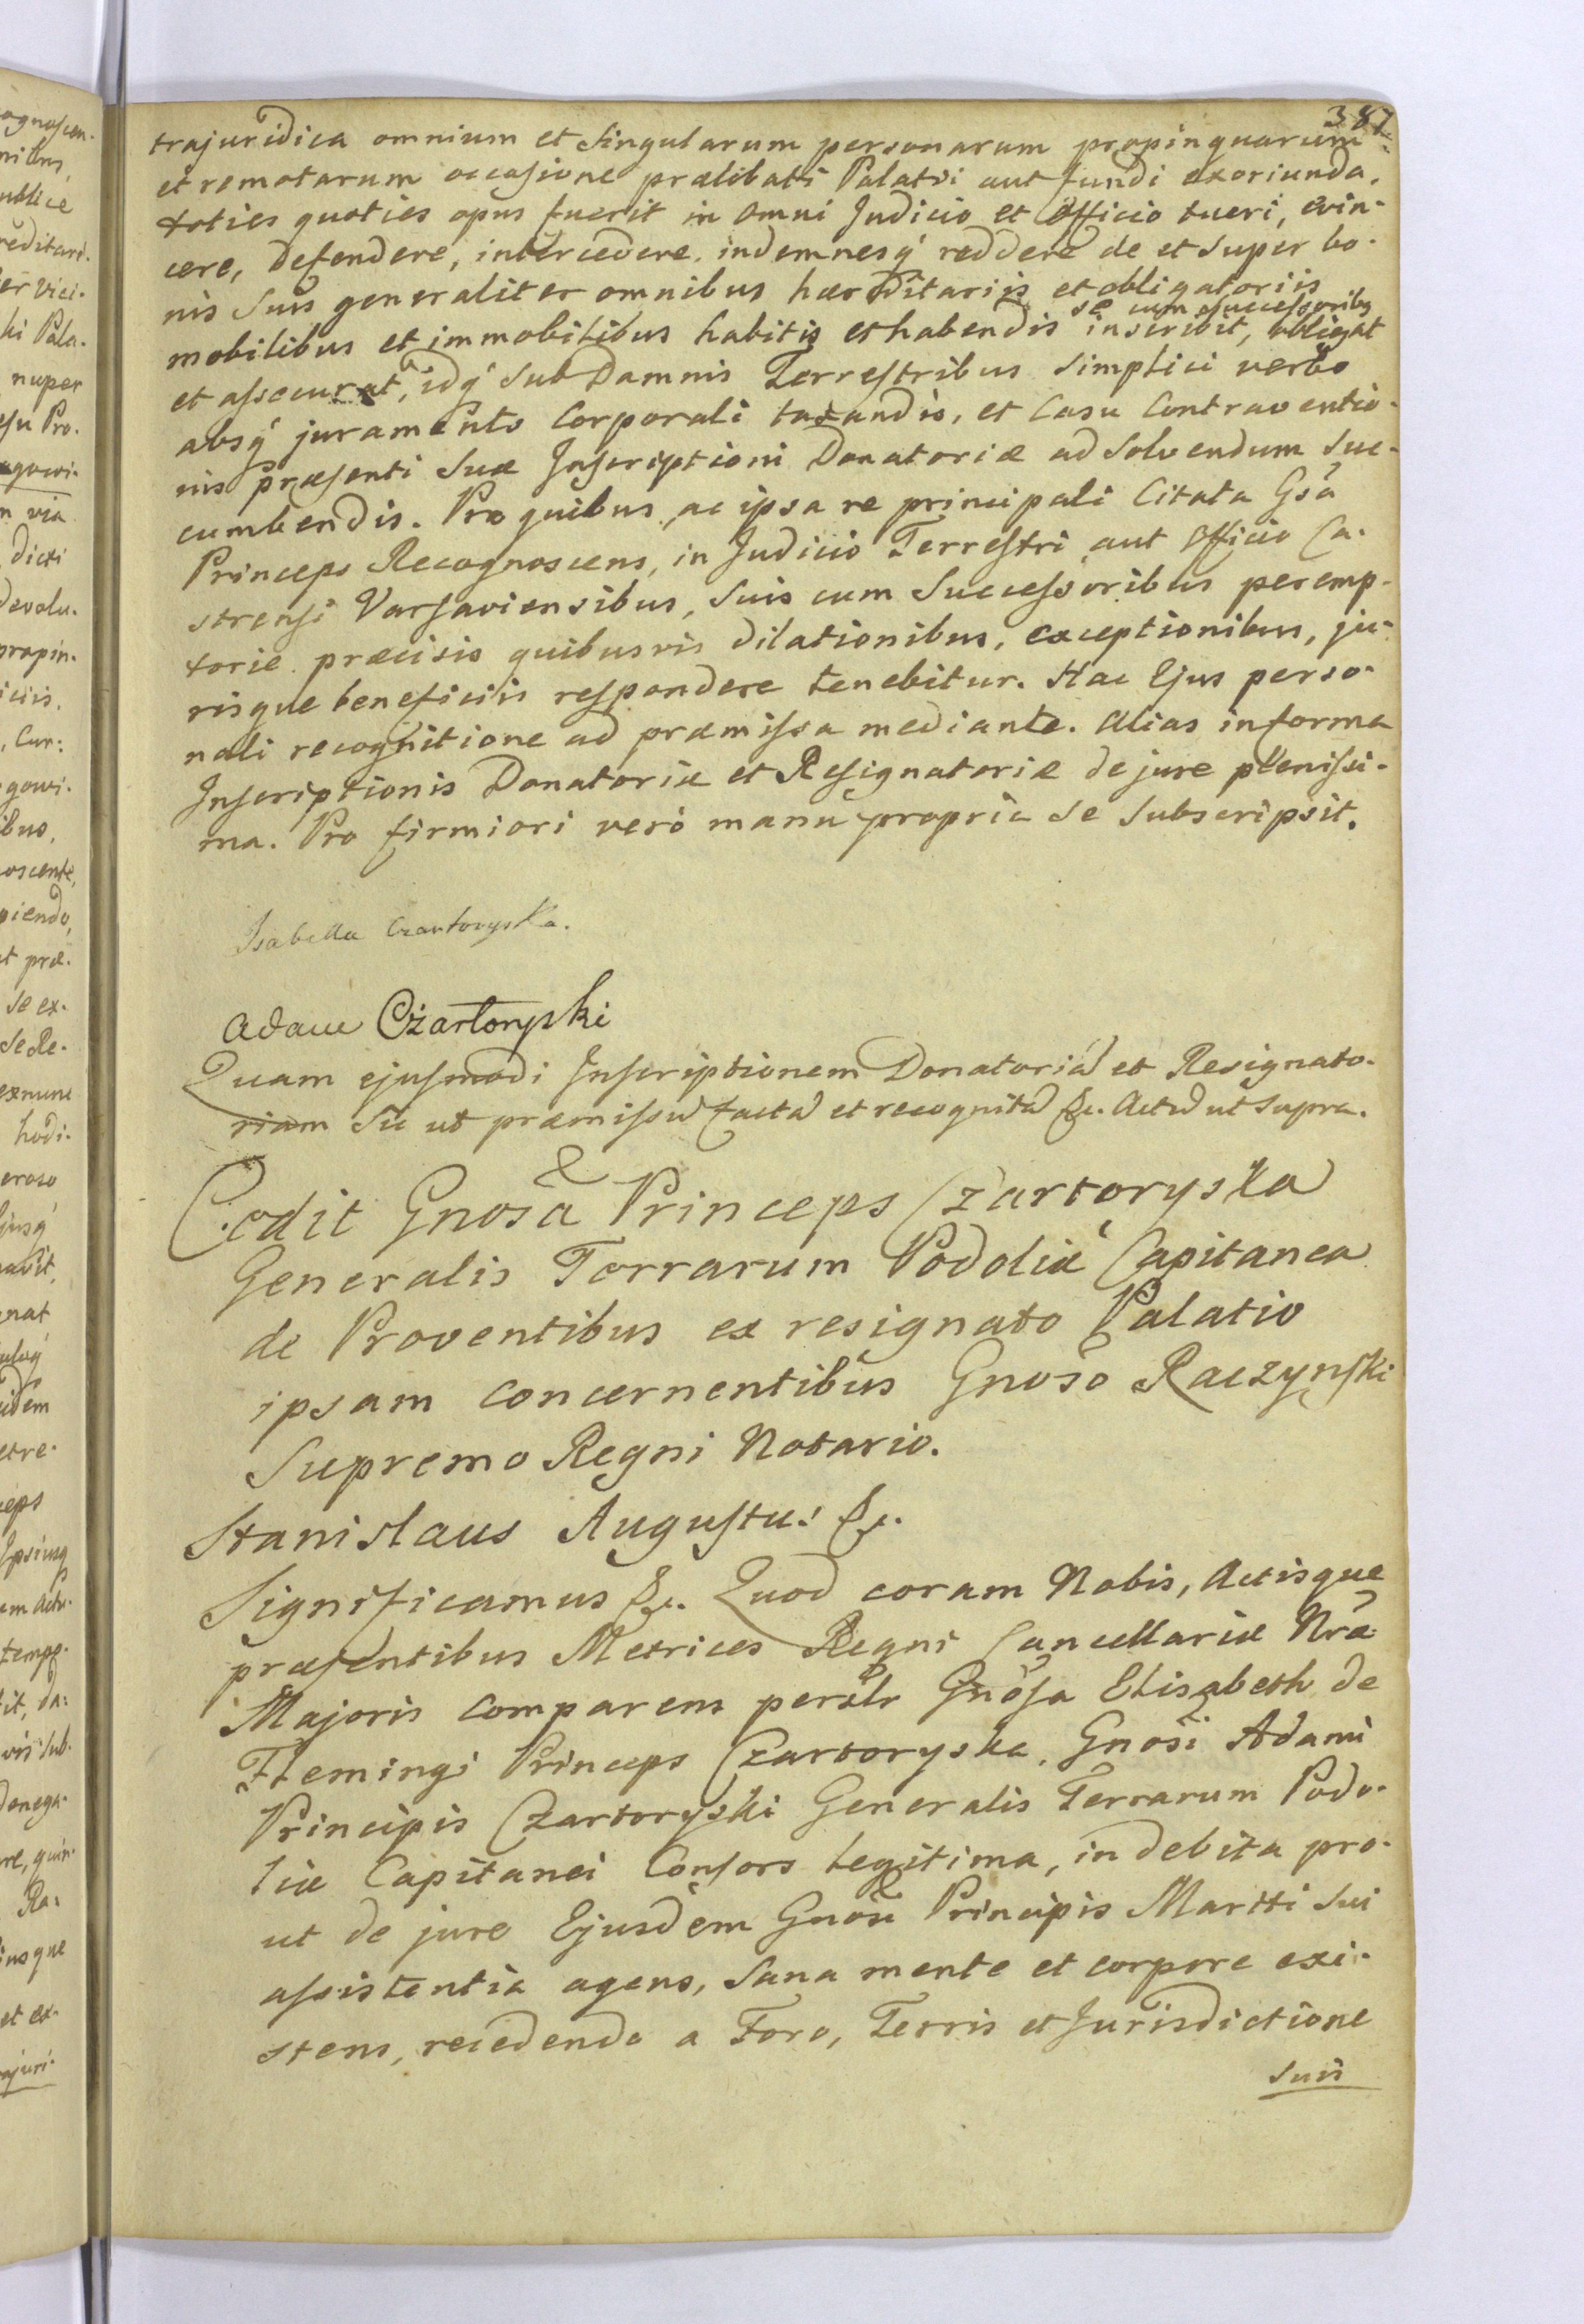 387
trajuridica omnium et singularum personarum propinquarum
et remotarum occasione prælibati Palatii aut fundi exoriunda,
toties quoties opus fuerit in omni Judicio et Officio tueri, evin-
cere, defendere, intercedere, indemnesq́ reddere de et super bo-
nis suis generaliter omnibus hærditariis et obligatoriis
se cum successoribus
mobilibus et immobilibus habitis et habendis inscribit, obligat
et assecurat, idq́ sub Damnis Terrestribus simplici verbo
absq́ juramento Corporali taxandis, et Casu Contraventio-
nis præsenti suæ Inscriptioni Donatoriæ ad solvendum suc-
cumbendis. Pro quibus, ac ipsa re principali Citata Gsa
Princeps Recognoscens, in Judicio Terrestri aut Officio Ca-
strensi Varsaviensibus, suis cum Successoribus peremp-
torie præcisis quibusvis dilationibus, exceptionibus, ju-
risque beneficiis respondere tenebitur. Hac Ejus perso-
nali recognitione ad præmissa mediante. Alias in forma
Inscriptionis Donatoriæ et Resignatoriæ de jure plenissi-
ma. Pro firmiori verò manu propria se subscripsit.
Isabella Czartoryska.
Adam Czartoryski
Quam ejusmodi Inscriptionem Donatoria et Resignato-
riam sic ut præmissu facta et recognita &c. Actu ut supra.
Cedit Gnosa Princeps Czartoryska
Generalis Terrarum Podoliæ Capitanea
de Proventibus ex resignato Palatio
ipsam concernentibus Gnoso Raczynski
Supremo Regni Notario.
Stanislaus Augustus &c.
Significamus &c. Quod coram Nobis, Actisque
præsentibus Metrices Regni Cancellariæ Nræ
Majoris comparens persltr Gnosa Elisabeth de
Flemingi Princeps Czartoryska, Gnosi Adami
Principis Czartoryski Generalis Terrarum Podo-
liæ Capitanei Consors legitima, in debita pro-
ut de jure Ejusdem Gnosi Principis Martti sui
assistentia agens, sana mente et corpore exi-
stens, recedendo a Foro, Terris et Jurisdictione
suis